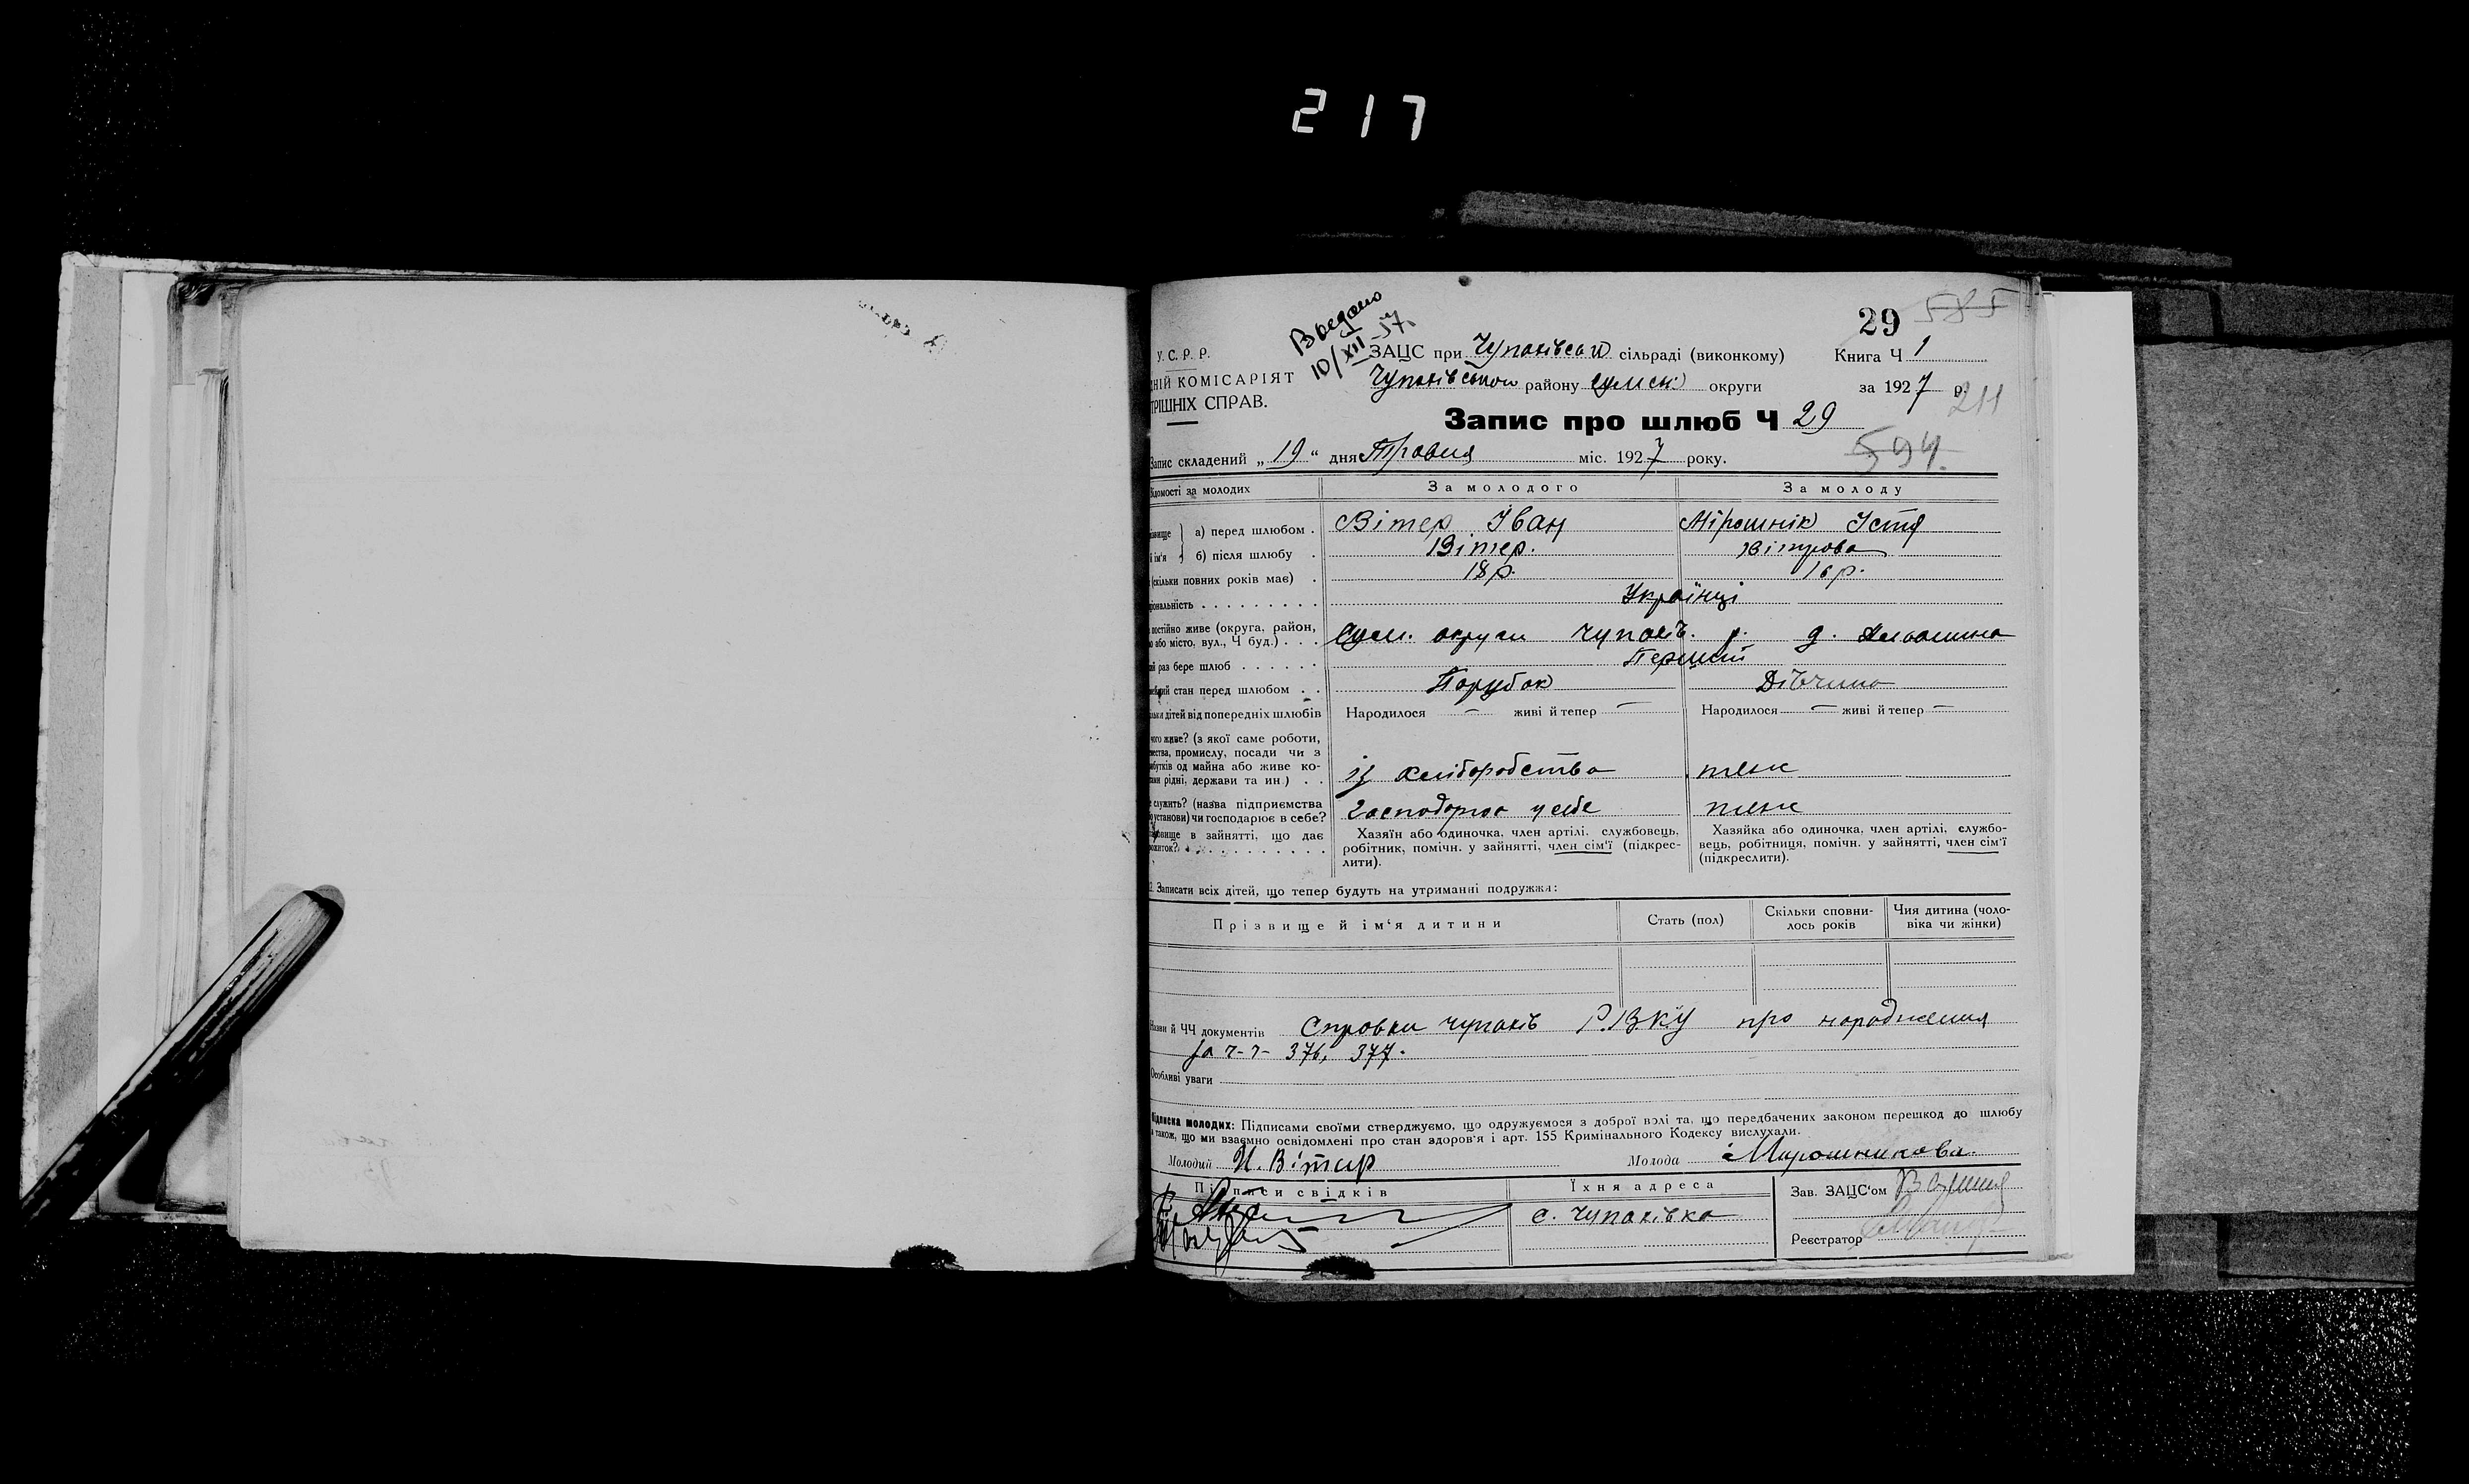 217
29 585
Видано
10/XII 57.
У. С. Р. Р.
ЗАЦС при Чупахівськ. сільраді (виконкому) Книга Ч 1
ДНІЙ КОМІСАРІЯТ
Чупахівськом району Сумськ. округи за 1927 р.
ТРІШНІХ СПРАВ.
211
Запис про шлюб Ч 29
594.
Запис складений „19“ дня Травня міс. 1927 року.
ідомості за молодих За молодого За молоду
а) перед шлюбом . Вітер Іван Мірошнік Устя
й ім'я б) після шлюбу . Вітер. Вітрова
(скільки повних років має) . 18 р. 16 р.
ціональність . . . . . . . . . Українці
постійно живе (округа, район,
або місто, вул., Ч буд.) . . . Сум. округи Чупахів. р. д.
ий раз бере шлюб . . . . . . Перший
стан перед шлюбом . . Парубок Дівчина
дітей від попередніх шлюбів Народилося — живі й тепер — Народилося — живі й тепер —
чого живе? (з якої саме роботи,
промислу, посади чи з
од майна або живе ко-
рідні, держави та ин.) . . із хліборобства теж
служить? (назва підприємства
установи) чи господарює в себе? господарює у себе теж
в зайнятті, що дає Хазяїн або одиночка, член артілі, службовець, Хазяйка або одиночка, член артілі, службо-
робітник, помічн. у зайнятті, член сім'ї (підкрес- вець, робітниця, помічн. у зайнятті, член сім'ї
лити). (підкреслити).
2. Записати всіх дітей, що тепер будуть на утриманні подружжа:
Прізвище й ім'я дитини Стать (пол) Скільки сповни- Чия дитина (чоло-
лось років віка чи жінки)
Назви й ЧЧ документів Справки Чупахів РВКу про народження
за ч-ч- 376, 377.
Особливі уваги
Підписка молодих: Підписами своїми стверджуємо, що одружуємося з доброї волі та, що передбачених законом перешкод до шлюбу
також, що ми взаємно освідомлені про стан здоров'я і арт. 155 Кримінального Кодексу вислухали.
Молодий И. Вітир Молода Мирошникова.
Підписи свідків Їхня адреса Зав. ЗАЦС'ом
с. Чупахівка
Реєстратор